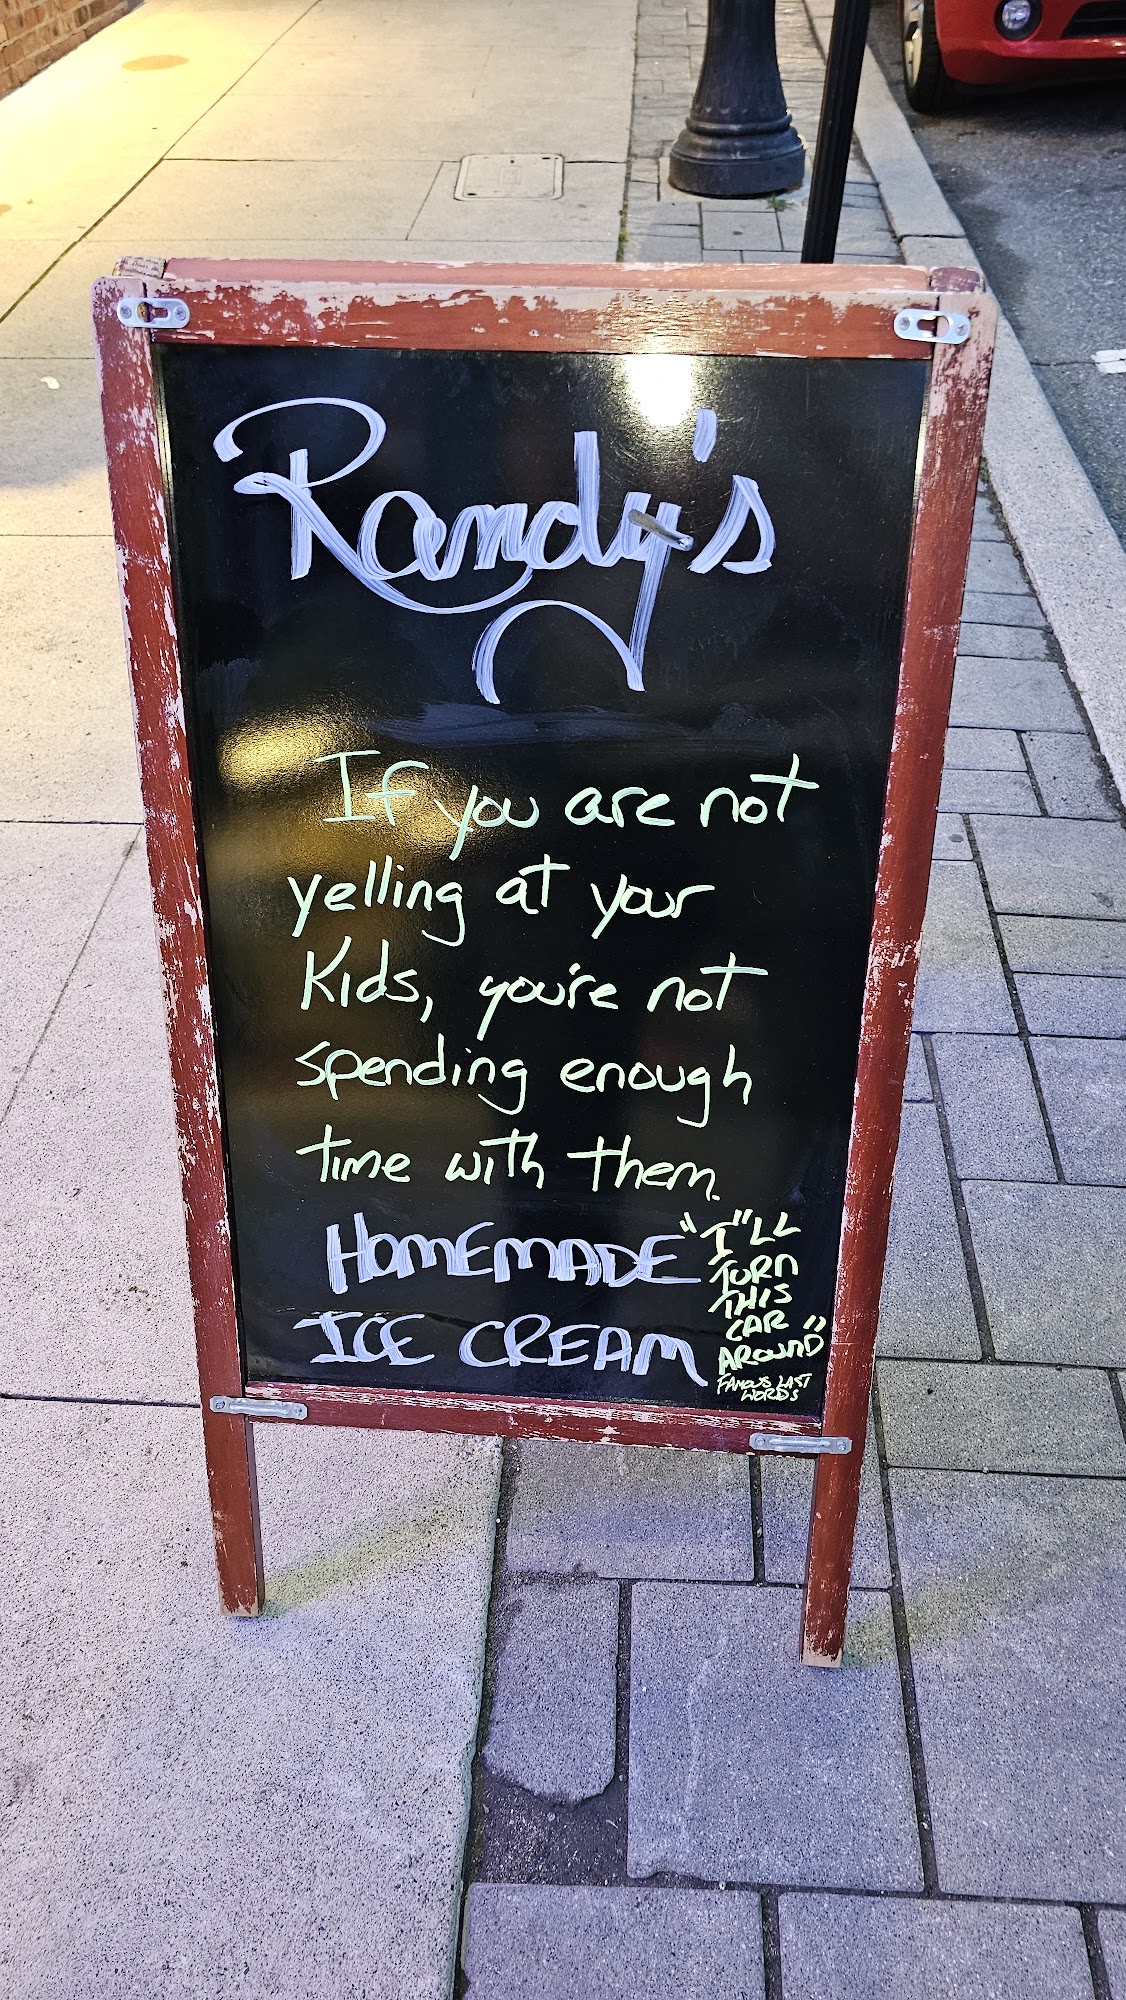 Randy's
If you are not
yelling at your
Kids, you're not
spending enough
time with them.
HOMEMADE
ICE CREAM
"I"LL
TURN
THIS
CAR
AROUND"
FAMOUS LAST
WORDS